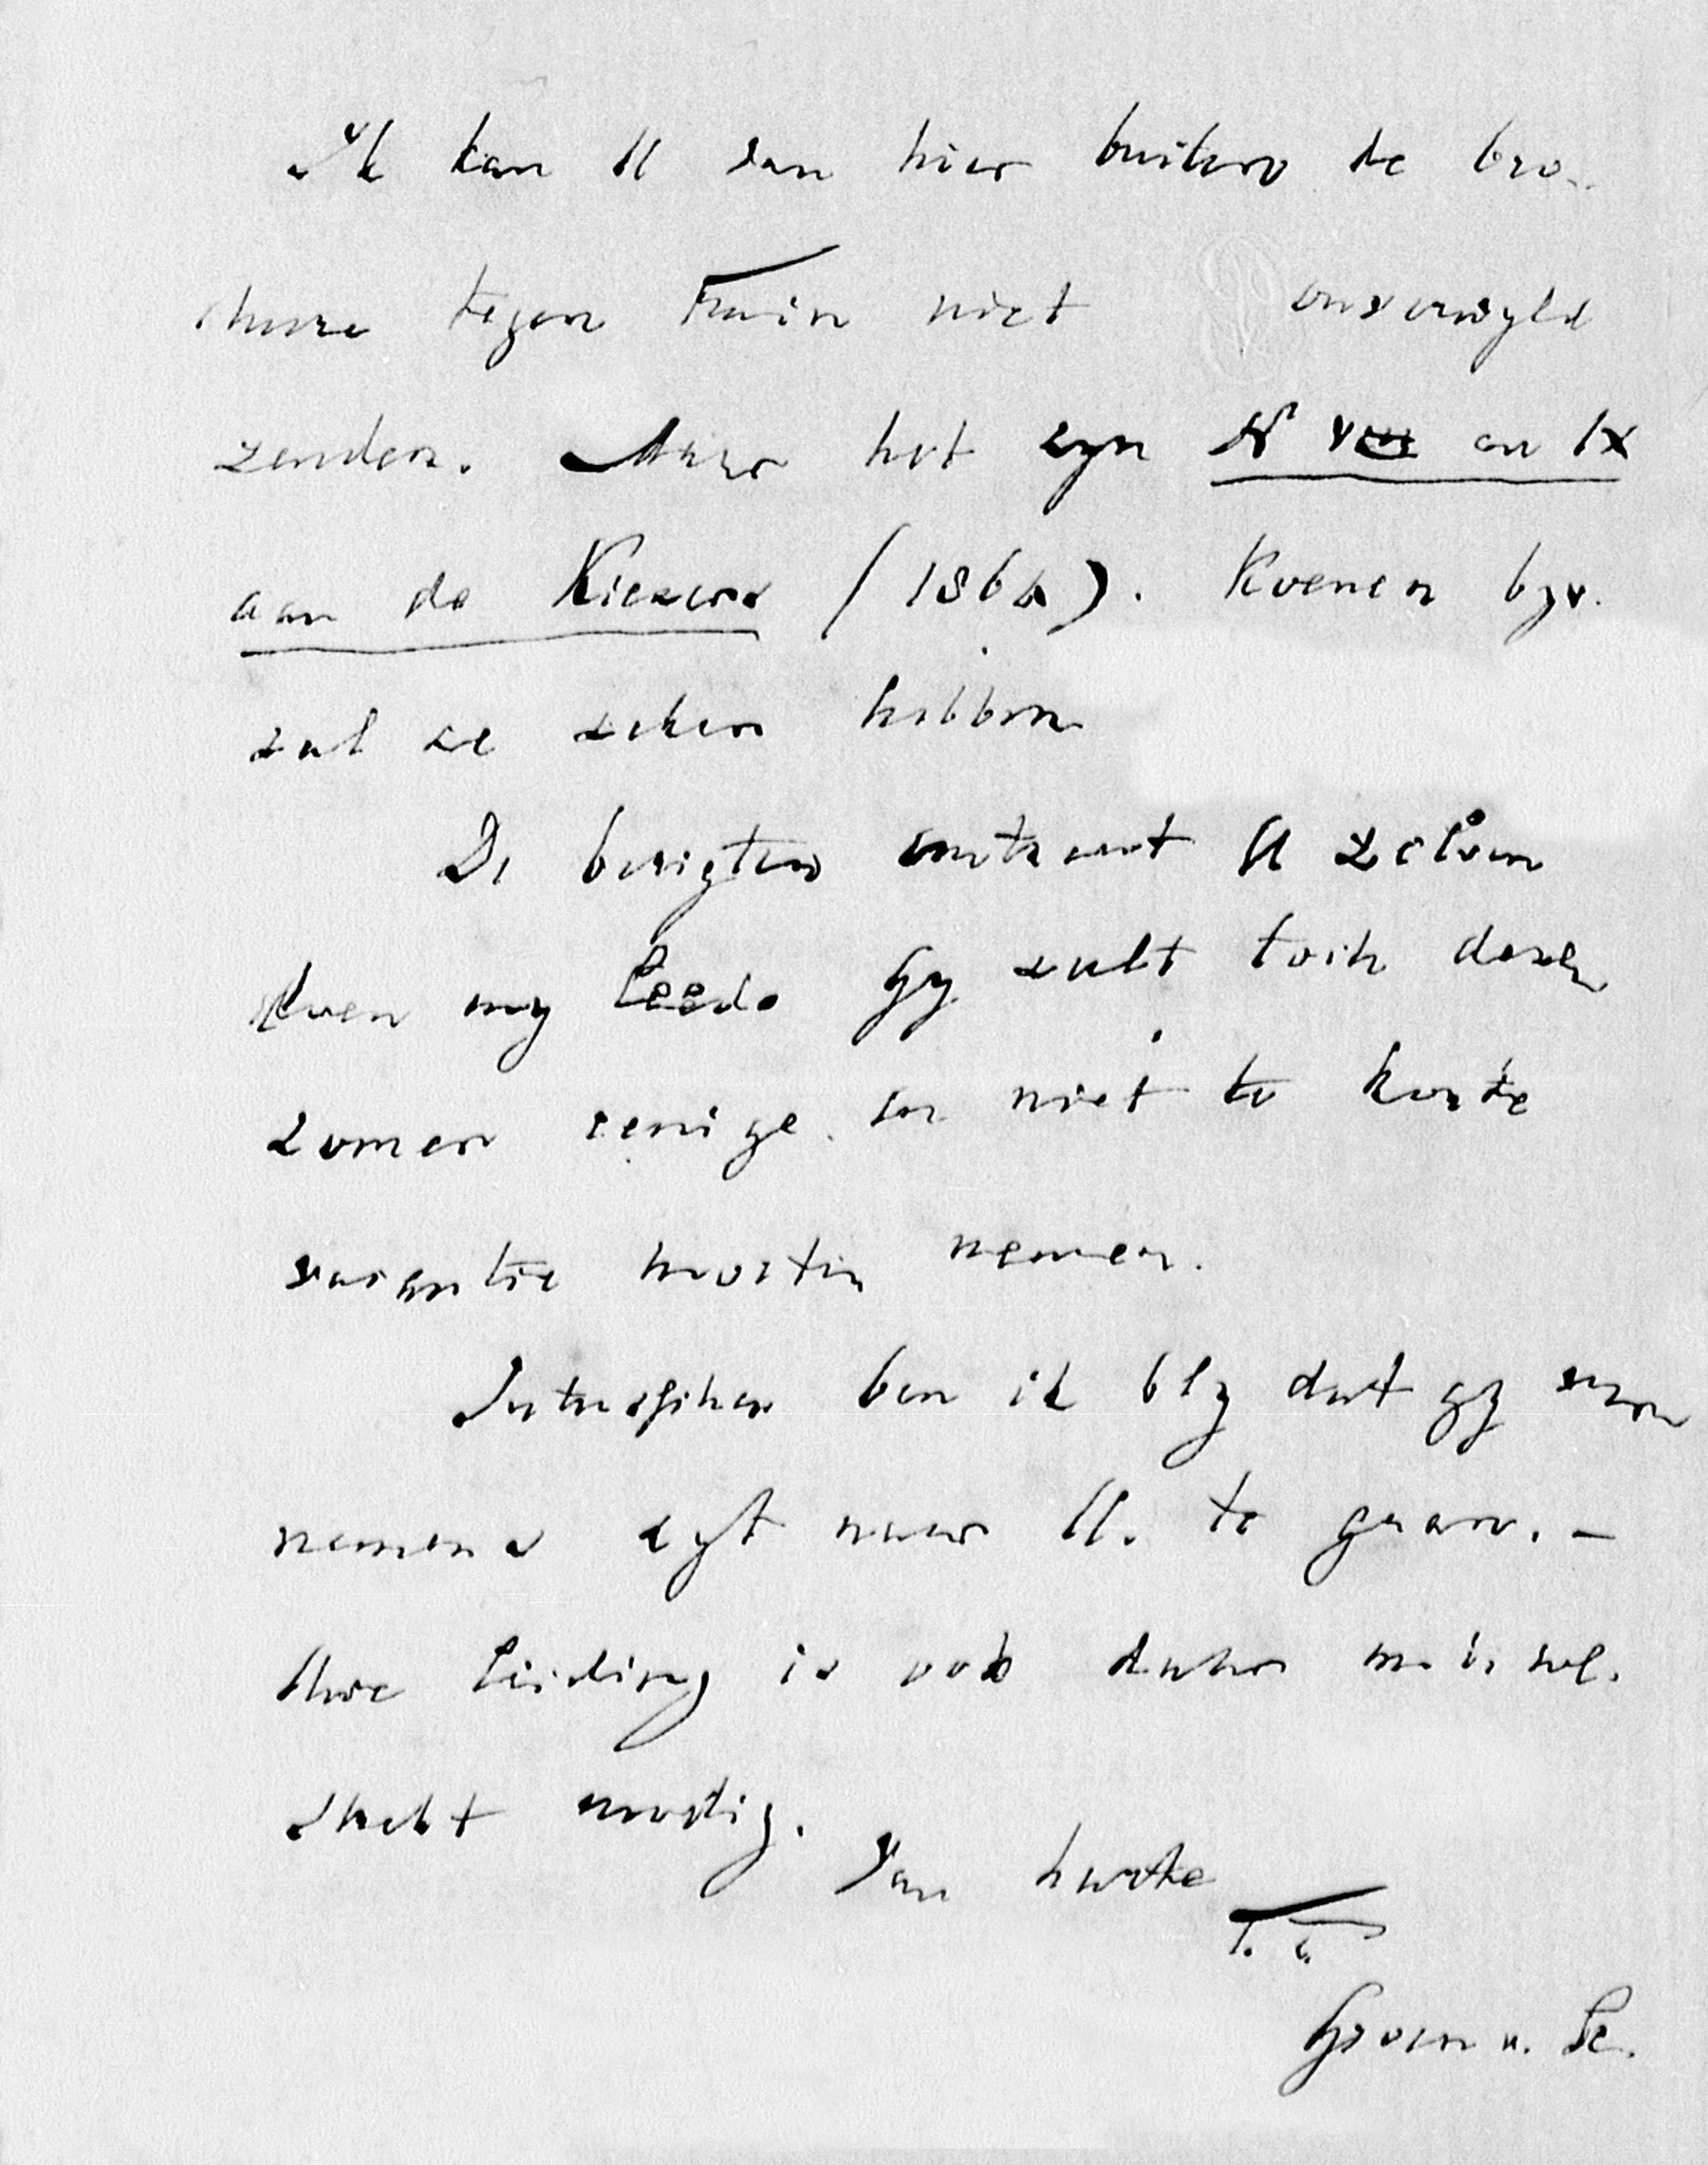 Ik kan U van hier buiten de bro-
chure tegen Fruin niet onverwyld
zenden. Maar het zyn N° VIII en IX
aan de Kiezers (1864). Koenen bijv.
zal ze zeker hebben
De berigten omtrent U zelven
doen my leed. Gy zult toch dezen
zomer eenige en niet te korte
vacantie moeten nemen.
Intusschen ben ik bly dat gy voor
nemens zyt naar U. te gaan. –
Uwe leiding is ook daar
nodig.
Van harte
T. t.
Groen v. Pr.